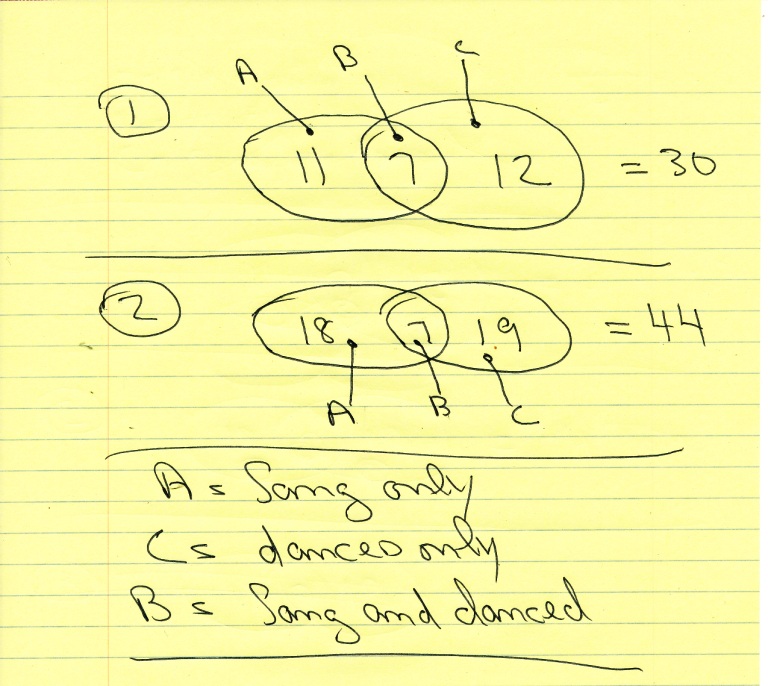 A B C
1 11 7 12 = 30
2 18 7 19 = 44
A B C
A = Sang only
C = danced only
B = Sang and danced